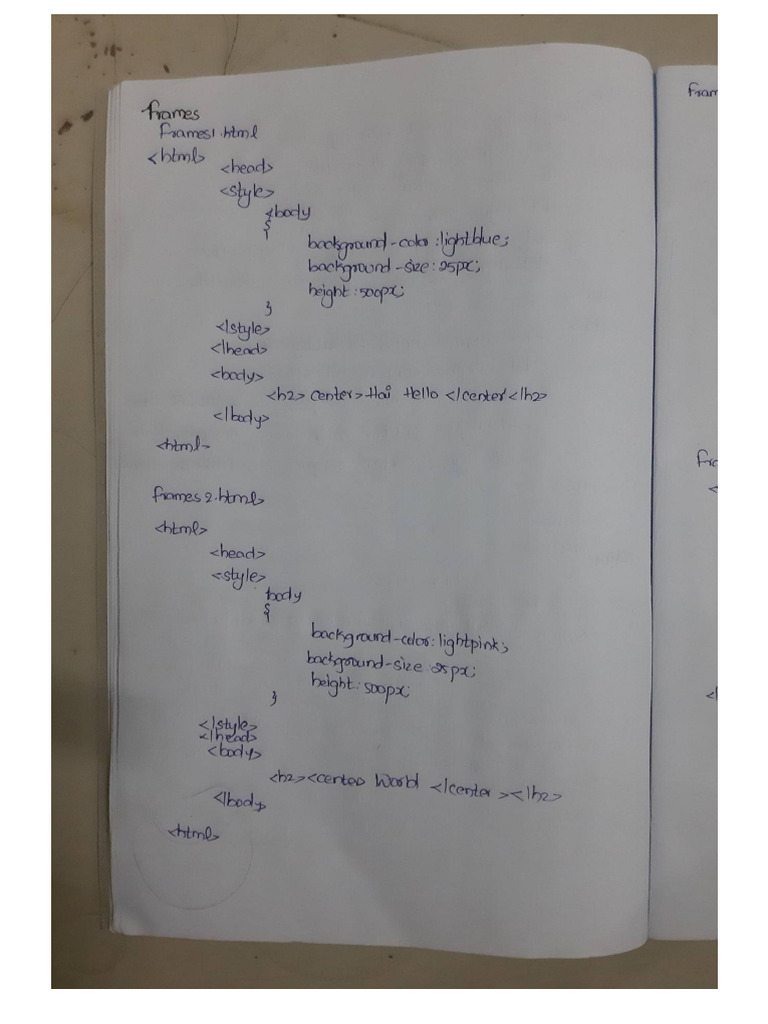 frames
frames1.html
<html>
<head>
<style>
<body
{
background-color:lightblue;
background-size:25px;
height:500px;
}
</style>
</head>
<body>
<h2> center> Hai Hello </center </h2>
</body>
<html>
frames2.html
<html>
<head>
<style>
body
{
background-color:lightpink;
background-size:25px;
height:500px;
}
</style>
</head>
<body>
<h2><center> World </center ></h2>
</body>
<html>